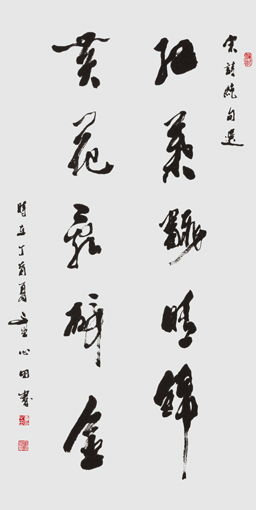 宋詩絶句選
紅葉翻晴錦
黄花亂碎金
時在丁酉夏心田書